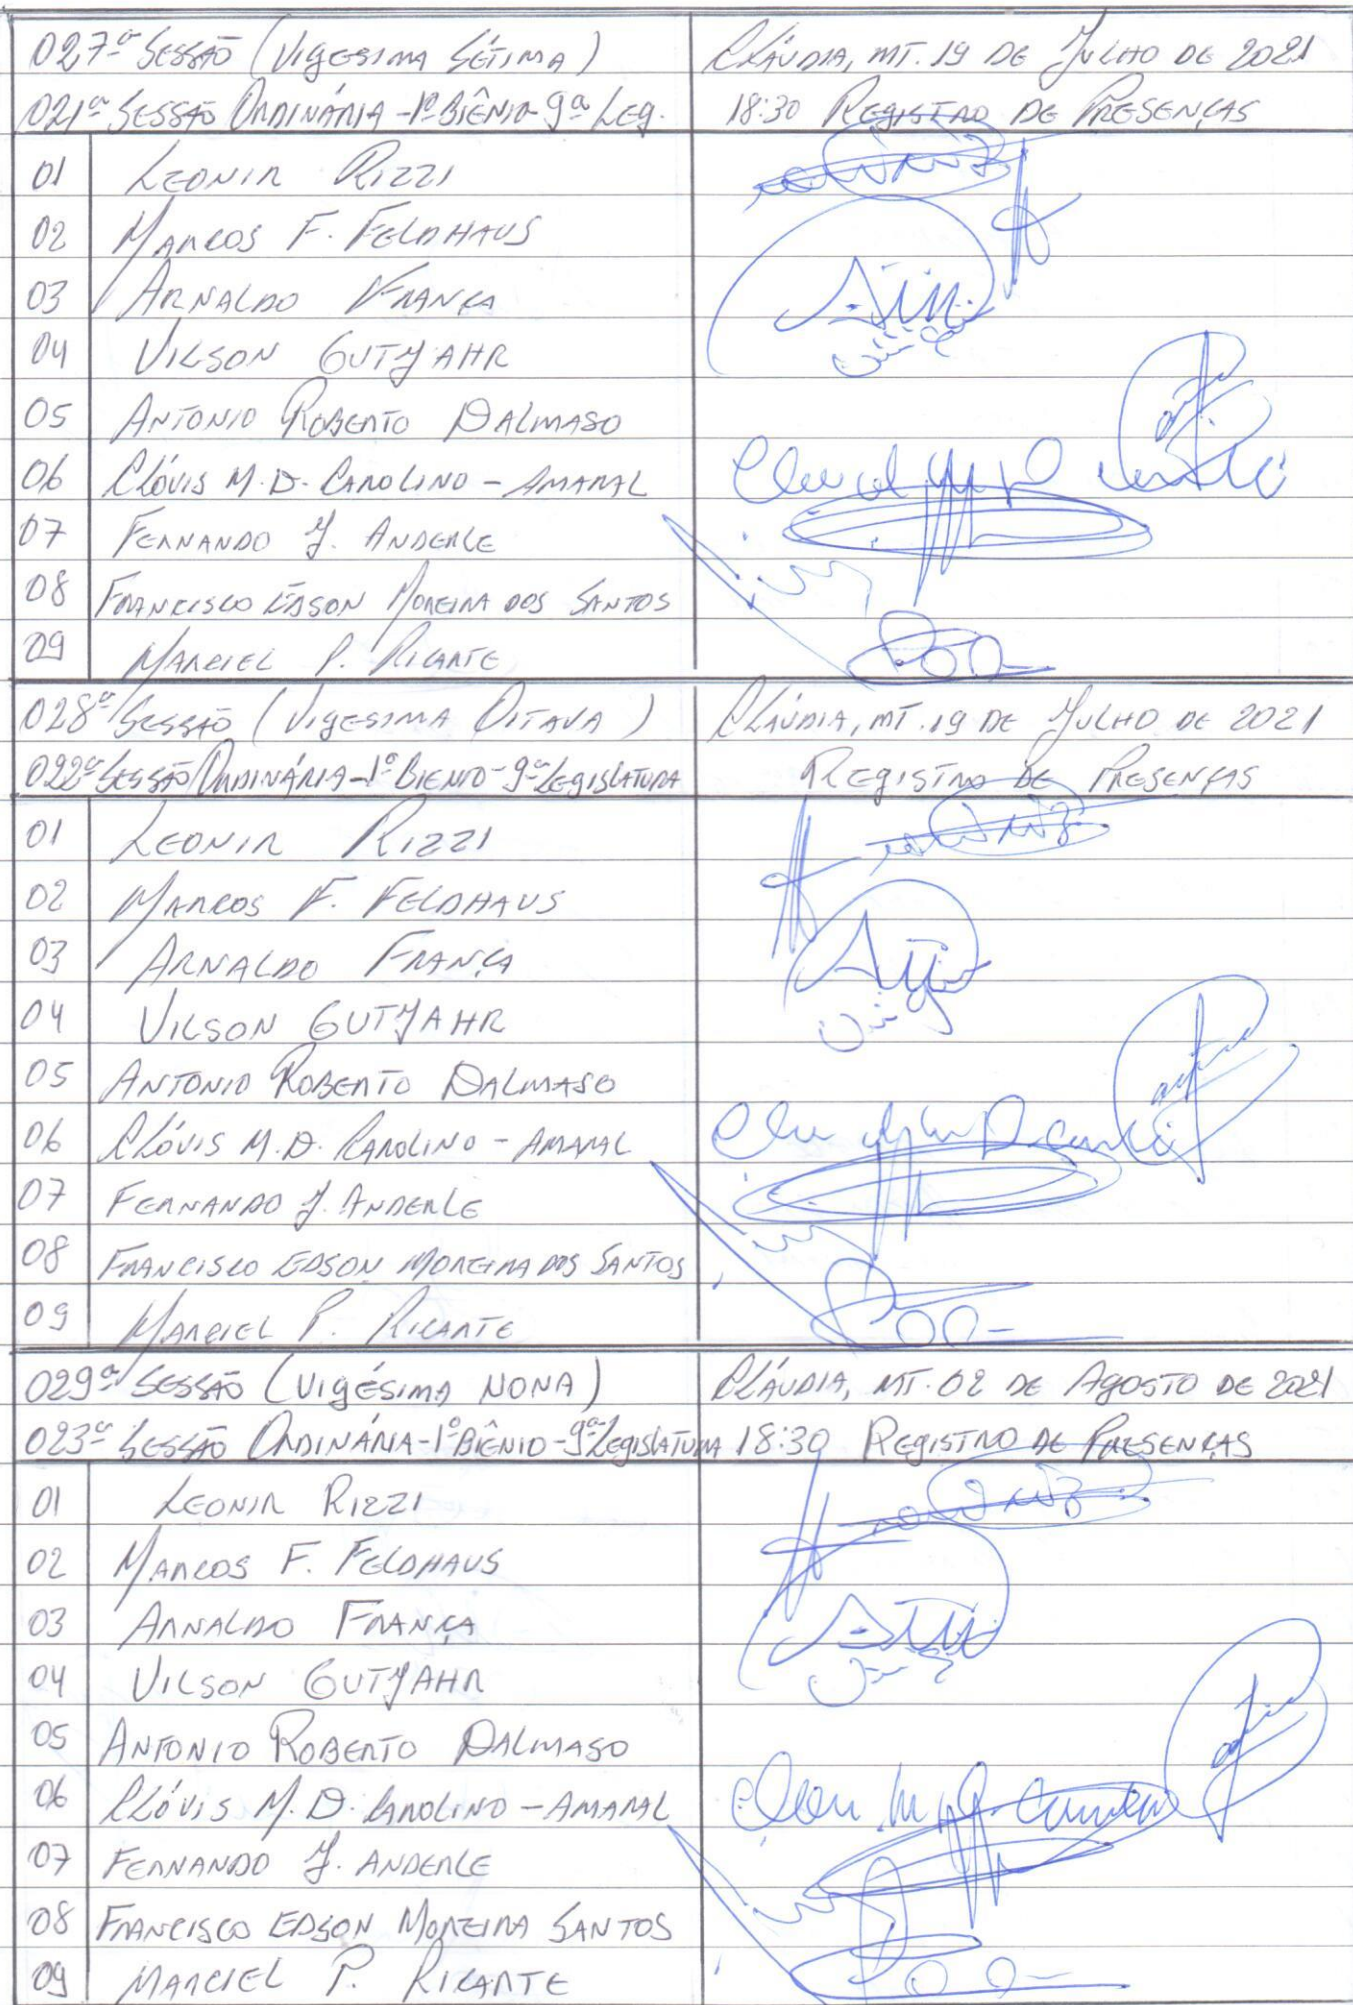 027ª Sessão (Vigesima Sétima) Cláudia, MT. 19 de Julho de 2021
021ª Sessão Ordinária - 1º Biênio - 9ª Leg. 18:30 Registro de Presenças
01 Leonir Rizzi
02 Marcos F. Feldhaus
03 Arnaldo França
04 Vilson Gutjahr
05 Antonio Roberto Dalmaso
06 Clóvis M. D. Carolino - Amaral
07 Fernando J. Anderle
08 Francisco Edson Moreira dos Santos
09 Marciel P. Ricarte
028ª Sessão (Vigesima Oitava) Cláudia, MT. 19 de Julho de 2021
022ª Sessão Ordinária - 1º Bienio - 9ª Legislatura Registro de Presenças
01 Leonir Rizzi
02 Marcos F. Feldhaus
03 Arnaldo França
04 Vilson Gutjahr
05 Antonio Roberto Dalmaso
06 Clóvis M. D. Carolino - Amaral
07 Fernando J. Anderle
08 Francisco Edson Moreira dos Santos
09 Marciel P. Ricarte
029ª Sessão (Vigésima Nona) Cláudia, MT. 02 de Agosto de 2021
023ª Sessão Ordinária - 1º Biênio - 9ª Legislatura 18:30 Registro de Presenças
01 Leonir Rizzi
02 Marcos F. Feldhaus
03 Arnaldo França
04 Vilson Gutjahr
05 Antonio Roberto Dalmaso
06 Clóvis M. D. Carolino - Amaral
07 Fernando J. Anderle
08 Francisco Edson Moreira Santos
09 Marciel P. Ricarte